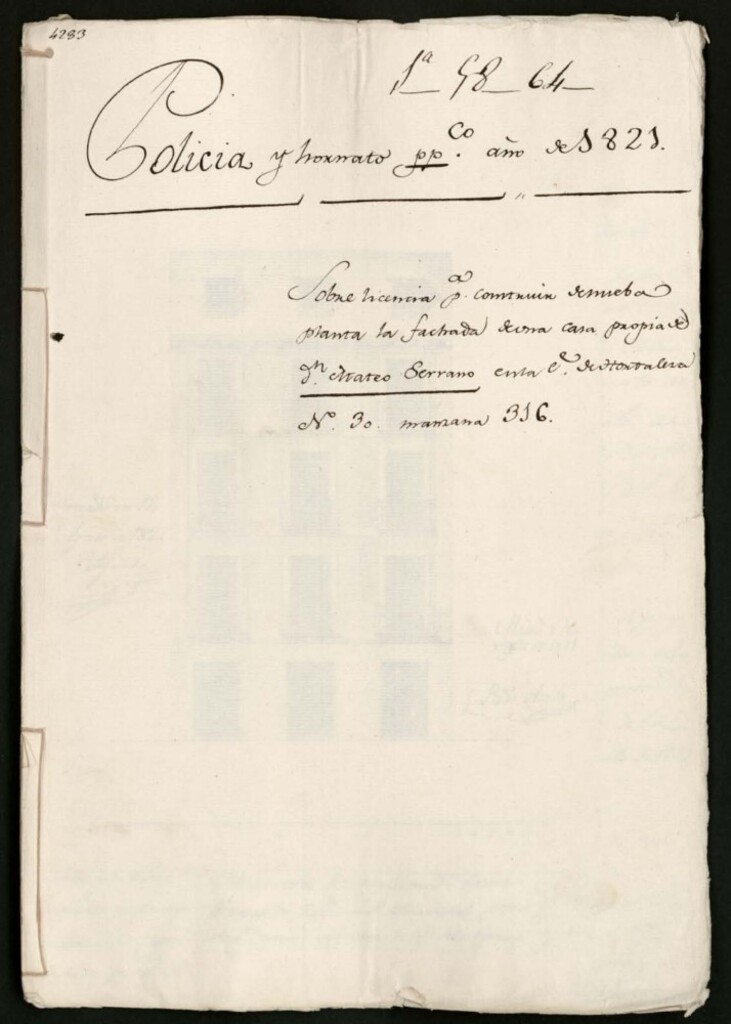 4283
1ª 58 64
Policia y hornato pp.co año de 1821.
Sobre licencia p.ª construir denueba
planta la fachada deuna casa propia de
Dn. Mateo Serrano enla C.e de Hortaleza
Nº. 30. manzana 316.